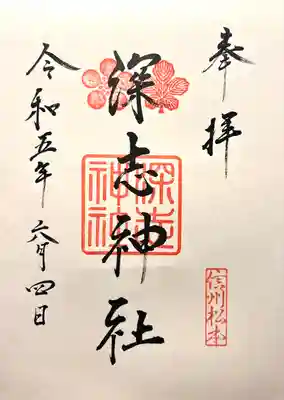 奉拝
信州松本
深志神社
深志神社
令和五年六月四日